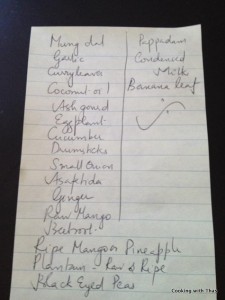 Mung dal
Garlic
Curryleaves
Coconut oil
Ash gourd
Eggplant
Cucumber
Drumsticks
Small Onion
Asafetida
Ginger
Raw Mango
Beetroot
Ripe Mangoes Pineapple
Plantain - Raw & Ripe
Black Eyed Peas
Puppadam
Condensed
Milk
Banana leaf
Cooking with Thas